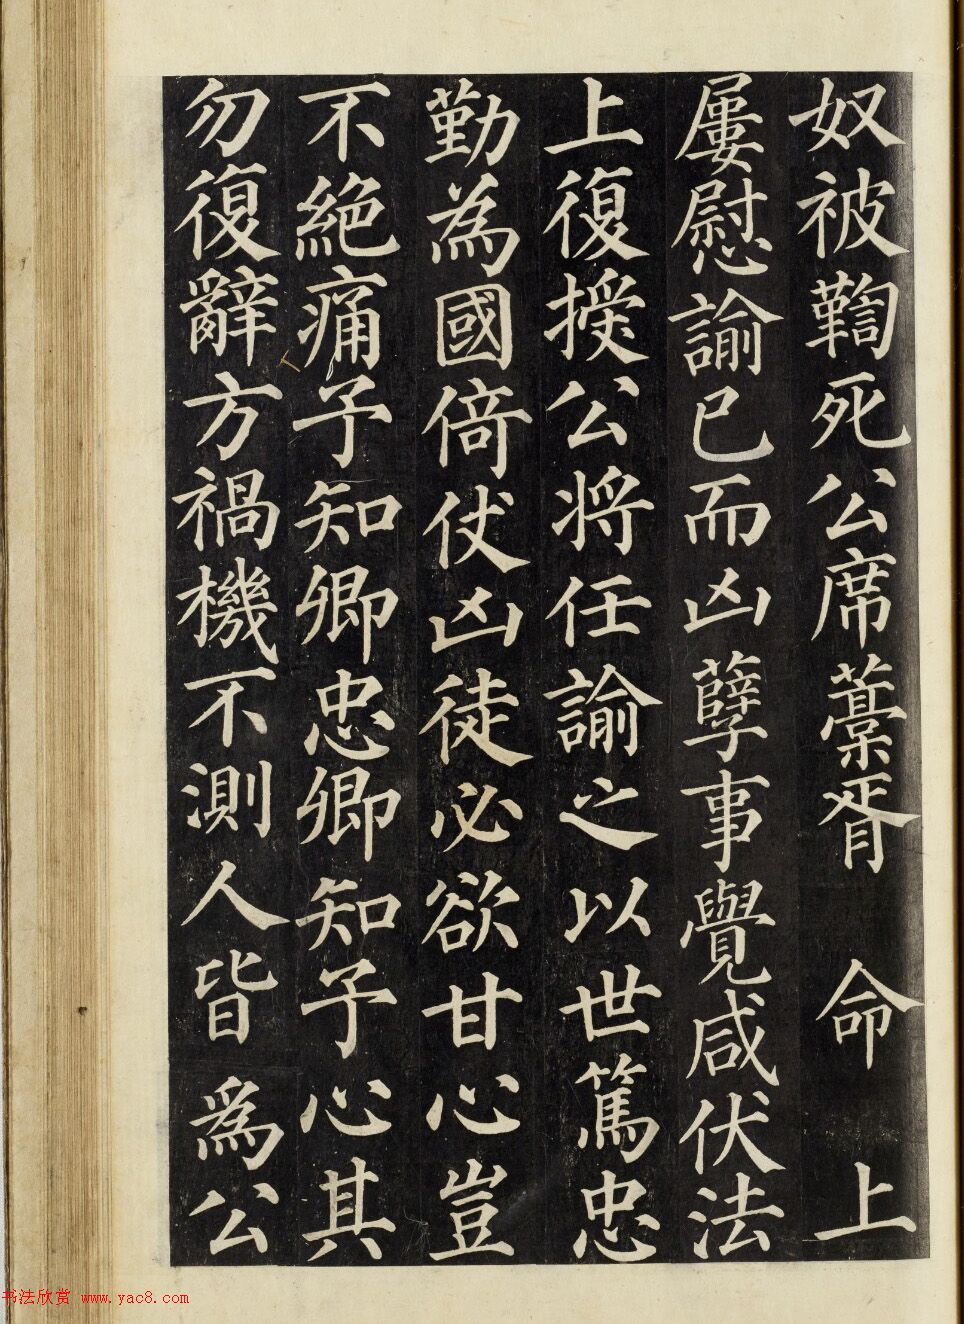 奴被鞫死公席藁胥命上
屢慰諭已而凶孽事覺咸伏法
上復授公將任諭之以世篤忠
勤為國倚仗凶徒必欲甘心豈
不絕痛子知卿忠卿知子心其
勿復辭方禍機不測人皆為公
书法欣赏 www.yac8.com